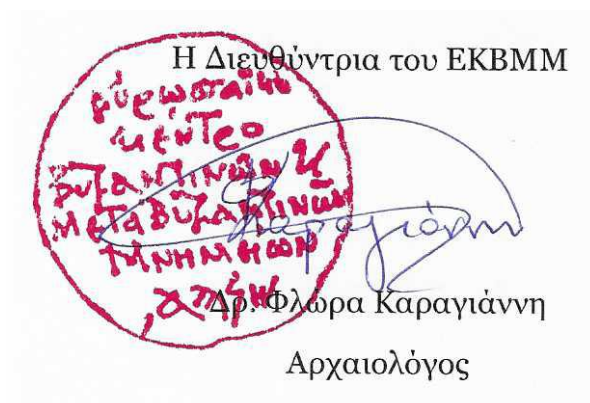 Η Διευθύντρια του ΕΚΒΜΜ
ευρωπαϊκό
κέντρο
βυζαντινών κ
μεταβυζαντινών
μνημείων
Καραγιάννη
Δρ. Φλώρα Καραγιάννη
Αρχαιολόγος